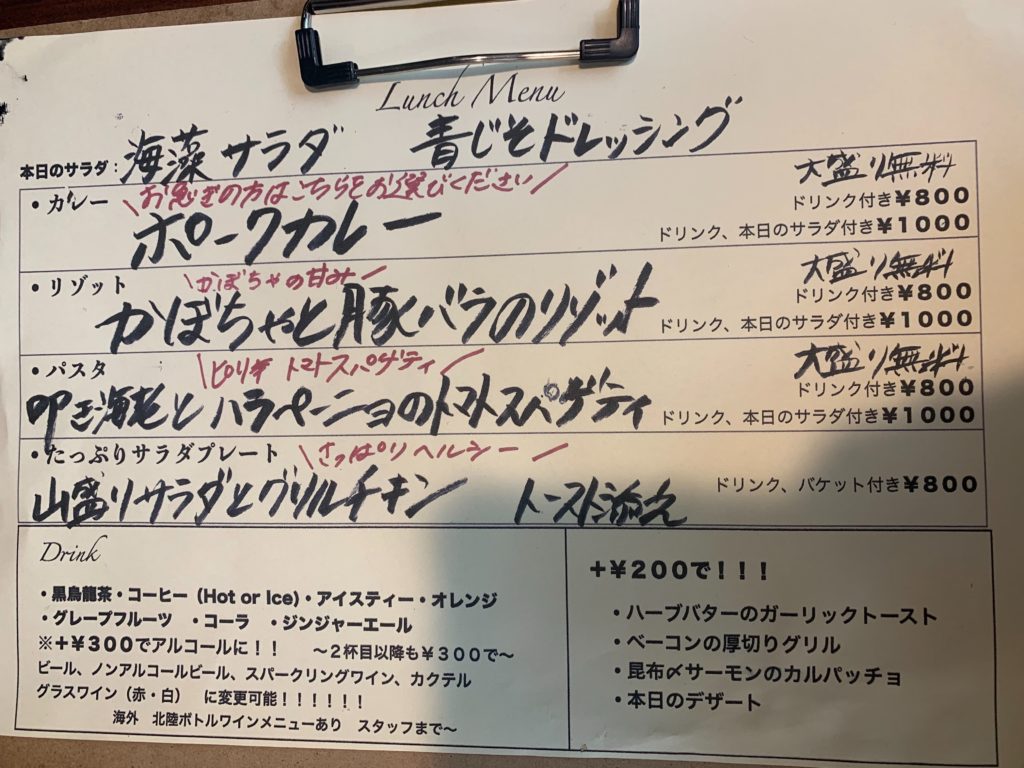 Lunch Menu
本日のサラダ：海藻サラダ 青じそドレッシング
・カレー \お急ぎの方はこちらをお選びください/ 大盛り無料
ポークカレー
ドリンク付き¥800
ドリンク、本日のサラダ付き¥1000
・リゾット \かぼちゃの甘み/ 大盛り無料
かぼちゃと豚バラのリゾット
ドリンク付き¥800
ドリンク、本日のサラダ付き¥1000
・パスタ \ピリ辛 トマトスパゲティ/ 大盛り無料
叩き海老とハラペーニョのトマトスパゲティ
ドリンク付き¥800
ドリンク、本日のサラダ付き¥1000
・たっぷりサラダプレート \さっぱりヘルシー/
山盛りサラダとグリルチキン トースト添え
ドリンク、バケット付き¥800
Drink
・黒烏龍茶・コーヒー（Hot or Ice）・アイスティー・オレンジ
・グレープフルーツ ・コーラ ・ジンジャーエール
※+¥300でアルコールに！！ 〜2杯目以降も¥300で〜
ビール、ノンアルコールビール、スパークリングワイン、カクテル
グラスワイン（赤・白） に変更可能！！！！！！
海外 北陸ボトルワインメニューあり スタッフまで〜
+¥200で！！！
・ハーブバターのガーリックトースト
・ベーコンの厚切りグリル
・昆布〆サーモンのカルパッチョ
・本日のデザート